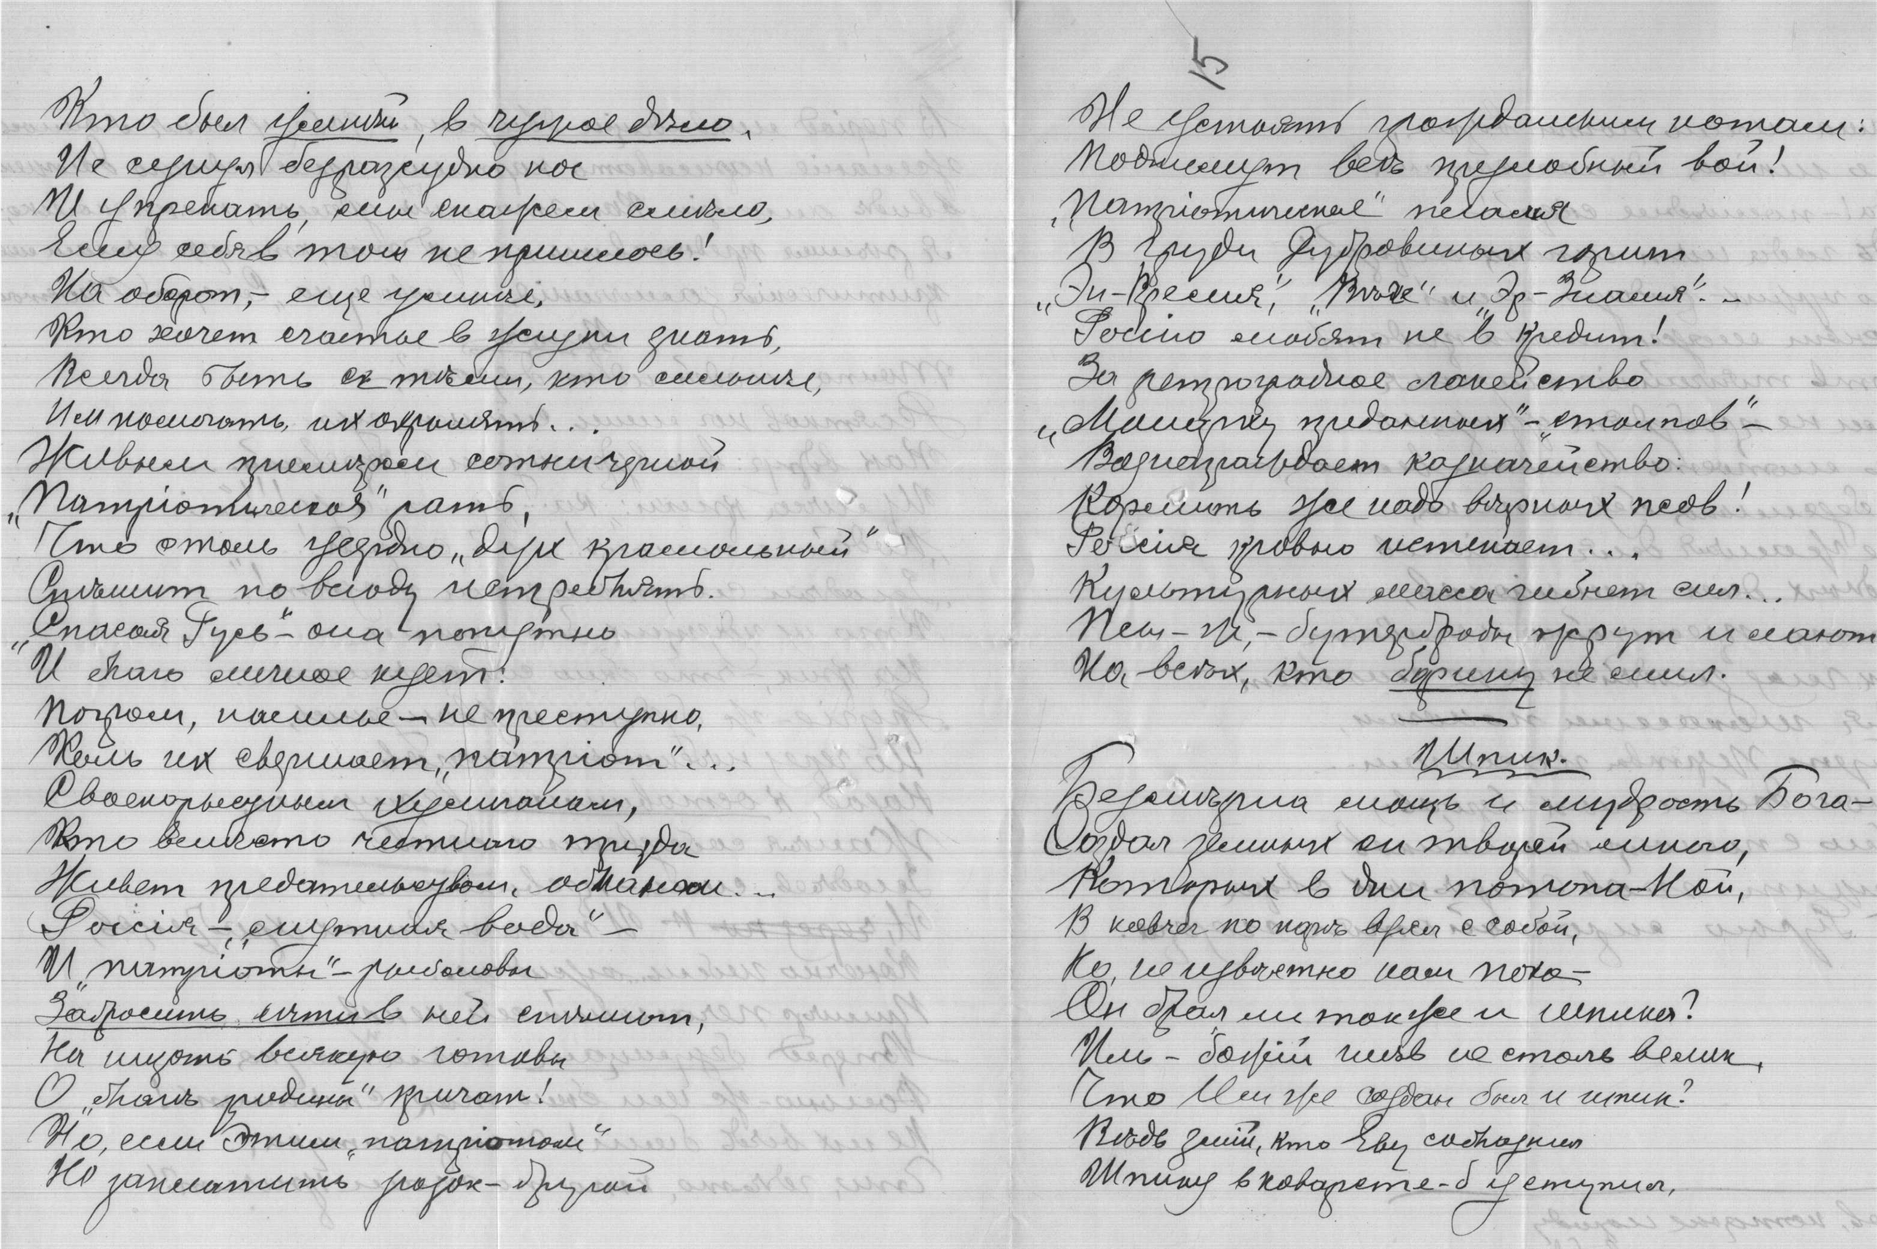 Кто был умный, в чужое дѣло,
Не сунул безразсудно нос
И упрекать, мы скажем смѣло,
Ему себя в том не пришлось!
На оборот,– еще умнѣе,
Кто хочет счастье в жизни знать,
Всегда быть с тѣми, кто сильнѣе,
Им помогать, их охранять...
Живым примѣром сотни черной
„Патріотическая" рать,
Что столь усердно „дух крамольный"
Спѣшит по всюду истреблять.
„Спасая Русь"– она попутно
И благо личное кует:
Погром, насилье – не преступно,
Коль их свершает „патріот"...
Своекорыстным хулиганам,
Кто вмѣсто честного труда
Живет предательством, обманом...
Россія –„мутная вода" –
И „патріоты" – рыболовы
Забросить сѣти в ней спѣшат,
На подлость всякую готовы
О „благѣ родины" кричат!
Но, если этим „патріотам"
Не заплатить разок– другой
15
Не устоять гражданским нотам:
Поднимут ведь презлобный вой!
„Патріотическое" пламя
В груди Дубровиных горит
„Эн-Время", „Вѣче" и „Эр-Знамя"...
Россію любят не в кредит!
За ретроградное лакейство
„Манеру преданных"–„столпов" –
Вознаграждает казначейство:
Кормить же надо вѣрных псов!
Россія кровью истекает...
Культурных масса гибнет сил...
Псы-же,– бутерброды жрут и лают
На всѣх, кто барину не мил.
Шпик.
Безмѣрна мощь и мудрость Бога –
Создал земных он тварей много,
Которых в дни потопа – Ной,
В ковчег по парѣ взял с собой,
Но, не извѣстно нам пока –
Он брал ли также и шпика?
Иль – божій гнѣв не столь велик,
Что Им же создан был и шпик?
Вѣдь змій, кто Еву соблазнил
Шпику в коварстве–б уступил,